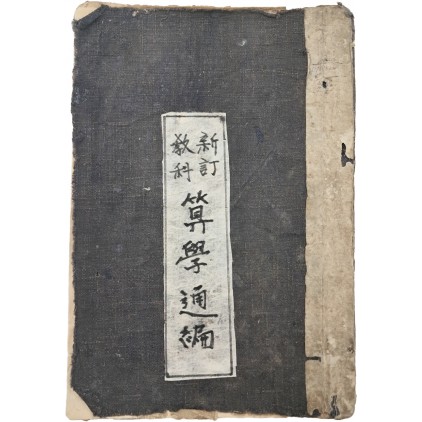 新訂
教科
算學通編